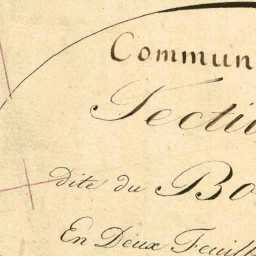 Commun
Sectio
dite du Bo
En Deux Feuill